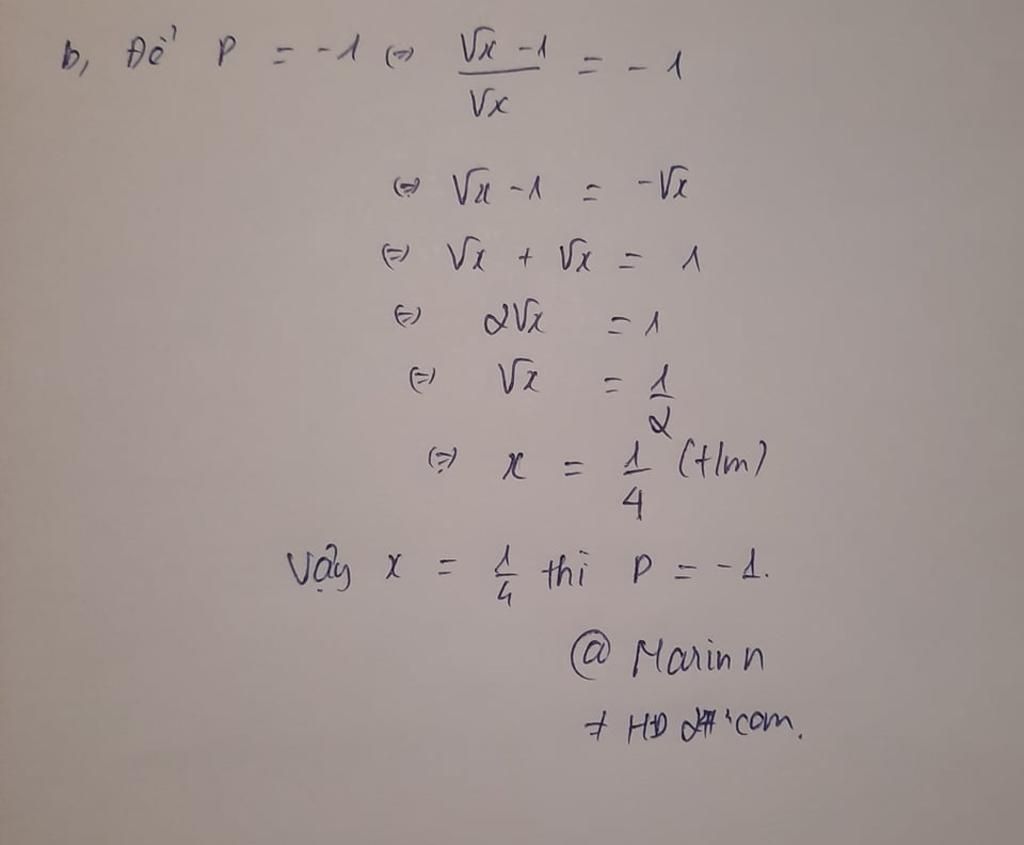 b, Để P = -1 (=) √x - 1 / √x = - 1
(=) √x - 1 = -√x
(=) √x + √x = 1
(=) 2√x = 1
(=) √x = 1/2
(=) x = 1/4 (t/m)
Vậy x = 1/4 thì P = -1.
@ Marinn
≠ HD com.